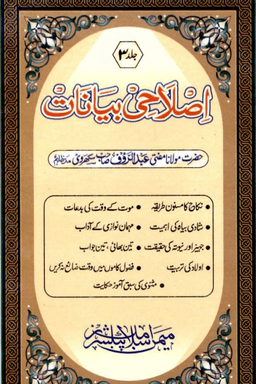 جلد ۳
اصلاحی بیانات
حضرت مولانا مفتی عبدالرؤف صاحب سکھروی مدظلہم
• نکاح کا مسنون طریقہ • موت کے وقت کی بدعات
• شادی بیاہ کی اہمیت • مہمان نوازی کے آداب
• جہیز اور نیوتہ کی حقیقت • تین بھائی، تین جواب
• اولاد کی تربیت • فضول کاموں میں وقت ضائع نہ کریں
• مثنوی کی سبق آموز حکایت
میمن اسلامک پبلشرز